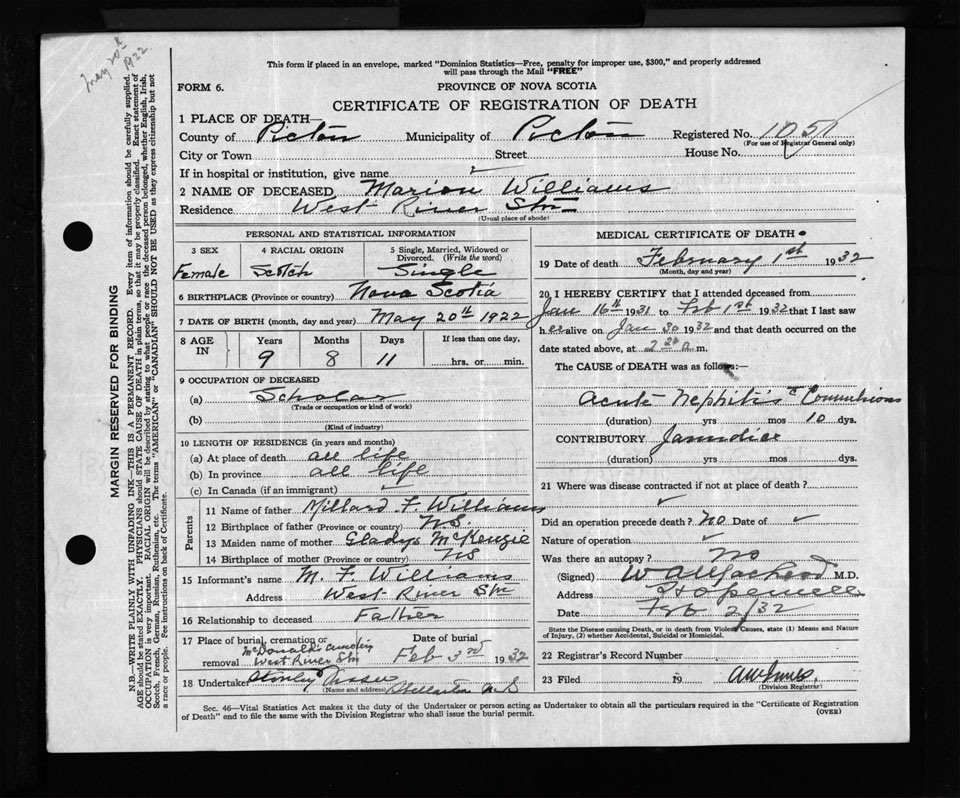 May 20th
1922
This form if placed in an envelope, marked "Dominion Statistics—Free, penalty for improper use, $300," and properly addressed
will pass through the Mail "FREE"
FORM 6.
PROVINCE OF NOVA SCOTIA
CERTIFICATE OF REGISTRATION OF DEATH
1 PLACE OF DEATH—
County of Pictou Municipality of Pictou Registered No. 1051
(For use of Registrar General only)
City or Town Street House No.
If in hospital or institution, give name ✓
2 NAME OF DECEASED Marion Williams
Residence West River Stn
(Usual place of abode)
PERSONAL AND STATISTICAL INFORMATION
3 SEX 4 RACIAL ORIGIN 5 Single, Married, Widowed or
Divorced. (Write the word)
Female Scotch Single
6 BIRTHPLACE (Province or country) Nova Scotia
7 DATE OF BIRTH (month, day and year) May 20th 1922
8 AGE IN Years Months Days If less than one day,
9 8 11 hrs. or min.
9 OCCUPATION OF DECEASED
(a) Scholar
(Trade or occupation or kind of work)
(b)
(Kind of industry)
10 LENGTH OF RESIDENCE (in years and months)
(a) At place of death all life
(b) In province all life
(c) In Canada (if an immigrant) ✓
Parents
11 Name of father Millard F. Williams
12 Birthplace of father (Province or country) N.S.
13 Maiden name of mother Gladys McKenzie
14 Birthplace of mother (Province or country) NS
15 Informant's name M. F. Williams
Address West River Stn
16 Relationship to deceased Father
17 Place of burial, cremation or Date of burial
McDonald's
removal West River Stn Feb 3rd 1932
18 Undertaker
(Name and address) Stellarton N.S
MEDICAL CERTIFICATE OF DEATH
19 Date of death February 1st 1932
(Month, day and year)
20 I HEREBY CERTIFY that I attended deceased from
Jan 16th 1931 to Feb 1st 1932 that I last saw
her alive on Jan 30 1932 and that death occurred on the
date stated above, at 2 a m.
The CAUSE of DEATH was as follows:—
Acute Nephitis c Convulsions
(duration) yrs mos 10 dys.
CONTRIBUTORY Jaundice
(duration) yrs mos dys.
21 Where was disease contracted if not at place of death? ✓
Did an operation precede death? no Date of ✓
Nature of operation ✓
Was there an autopsy? No
(Signed) M.D.
Address Hopewell
Date Feb 2/32
State the Disease causing Death, or in death from Violent Causes, state (1) Means and
Nature of Injury, (2) whether Accidental, Suicidal or Homicidal.
22 Registrar's Record Number
23 Filed 19
(Division Registrar)
Sec. 46—Vital Statistics Act makes it the duty of the Undertaker or person acting as Undertaker to obtain all the particulars required in the "Certificate of Registration
of Death" and to file the same with the Division Registrar who shall issue the burial permit.
(OVER)
MARGIN RESERVED FOR BINDING
N.B.—WRITE PLAINLY WITH UNFADING INK—THIS IS A PERMANENT RECORD. Every item of information should be carefully supplied.
AGE should be stated EXACTLY. PHYSICIANS should STATE CAUSE OF DEATH in plain terms, so that it may be properly classified. Exact statement of
OCCUPATION is very important. RACIAL ORIGIN will be described by stating to what people or race the deceased person belonged, whether English, Irish,
Scotch, French, German, Russian, Ruthenian, etc. The terms "AMERICAN" or "CANADIAN" SHOULD NOT BE USED as they express citizenship but not
a race or people. See instructions on back of Certificate.